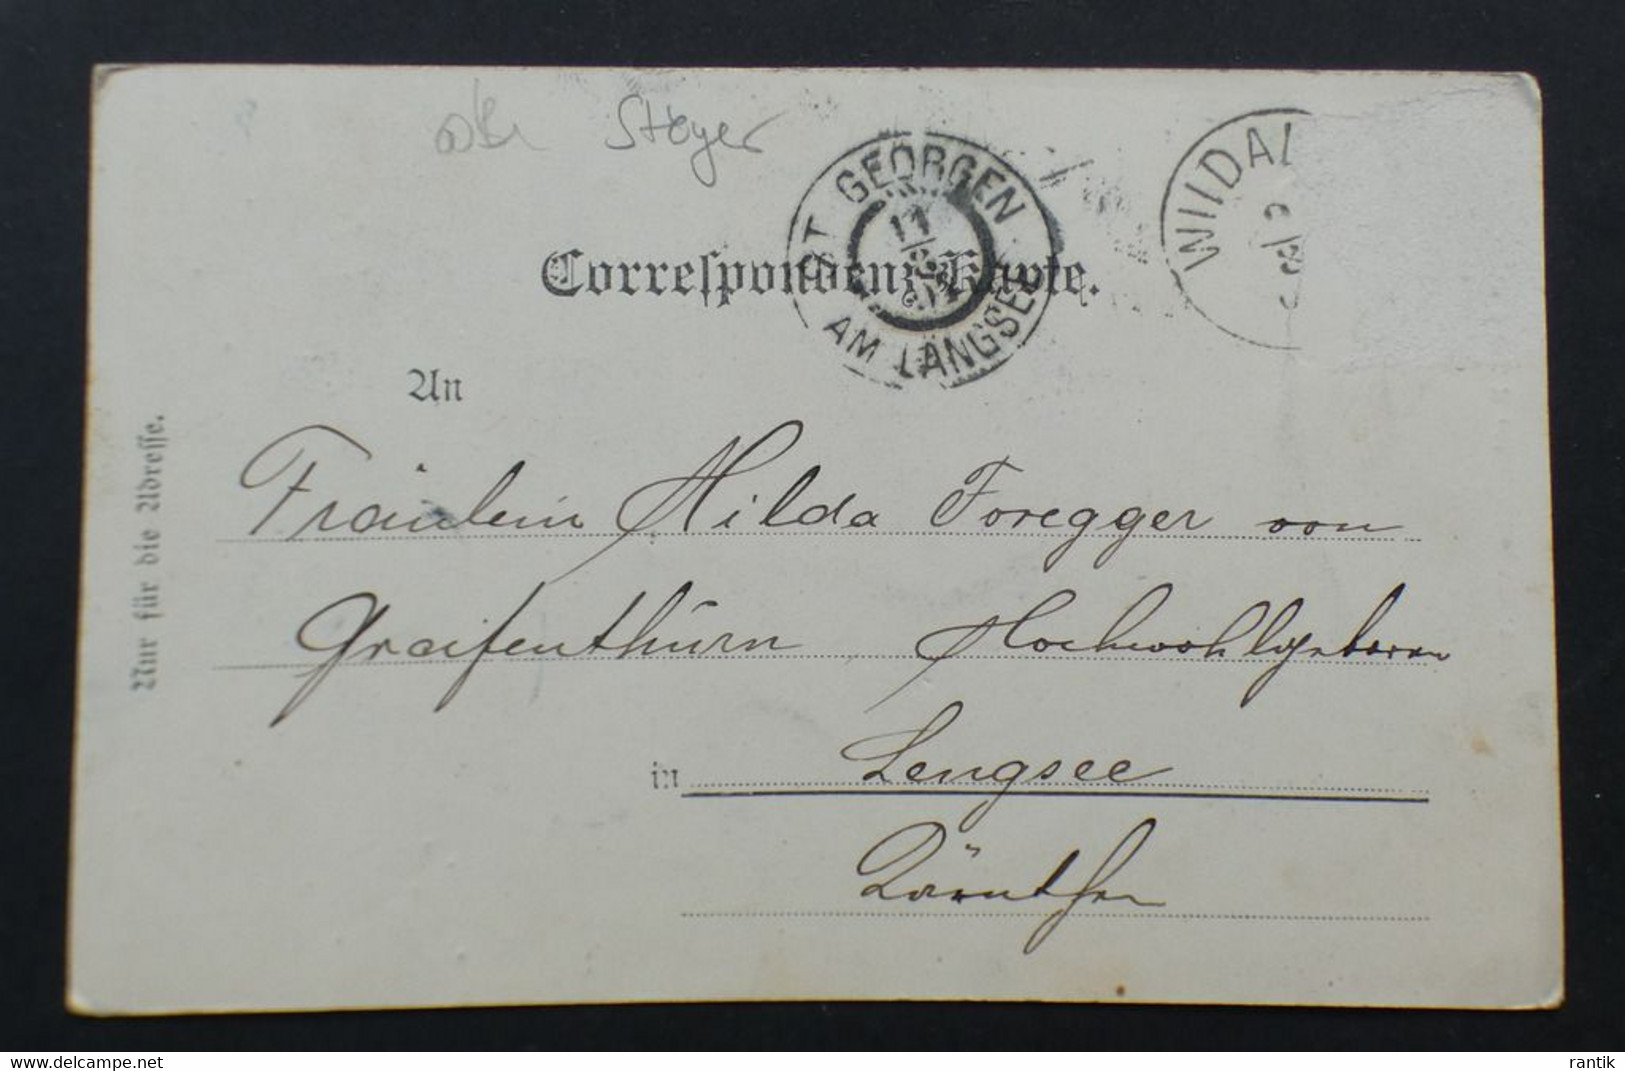 Steyer
ST. GEORGEN
AM LÄNGSEE
11
WILDAL
Correspondenz-Karte.
An
Nur für die Adresse.
Fräulein Hilda Foregger von
Greifenthurn Hochwohlgeboren
in Lengsee
Kärnthen
www.delcampe.net
rantik